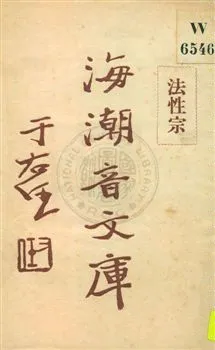 W
6546
法性宗
海潮音文庫
于右任